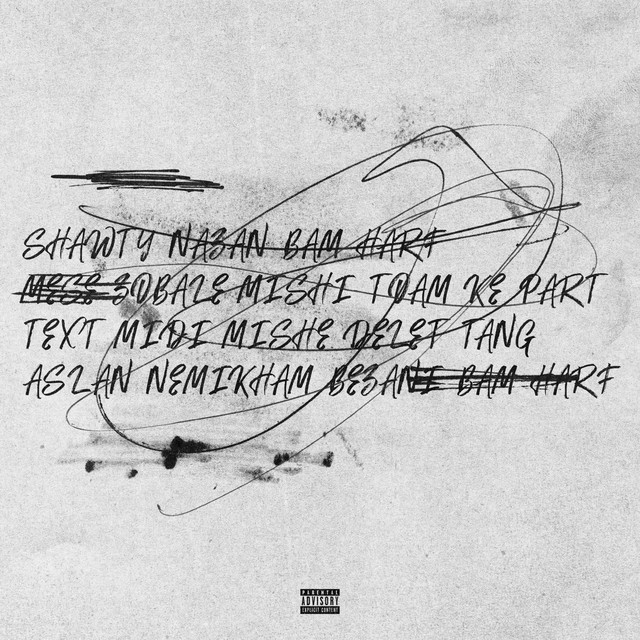 SHAWTY NAZAN BAM HARF
MESE ZOBALE MISHI TOAM KE PART
TEXT MIDI MISHE DELET TANG
ASLAN NEMIKHAM BEZANI BAM HARF
PARENTAL
ADVISORY
EXPLICIT CONTENT